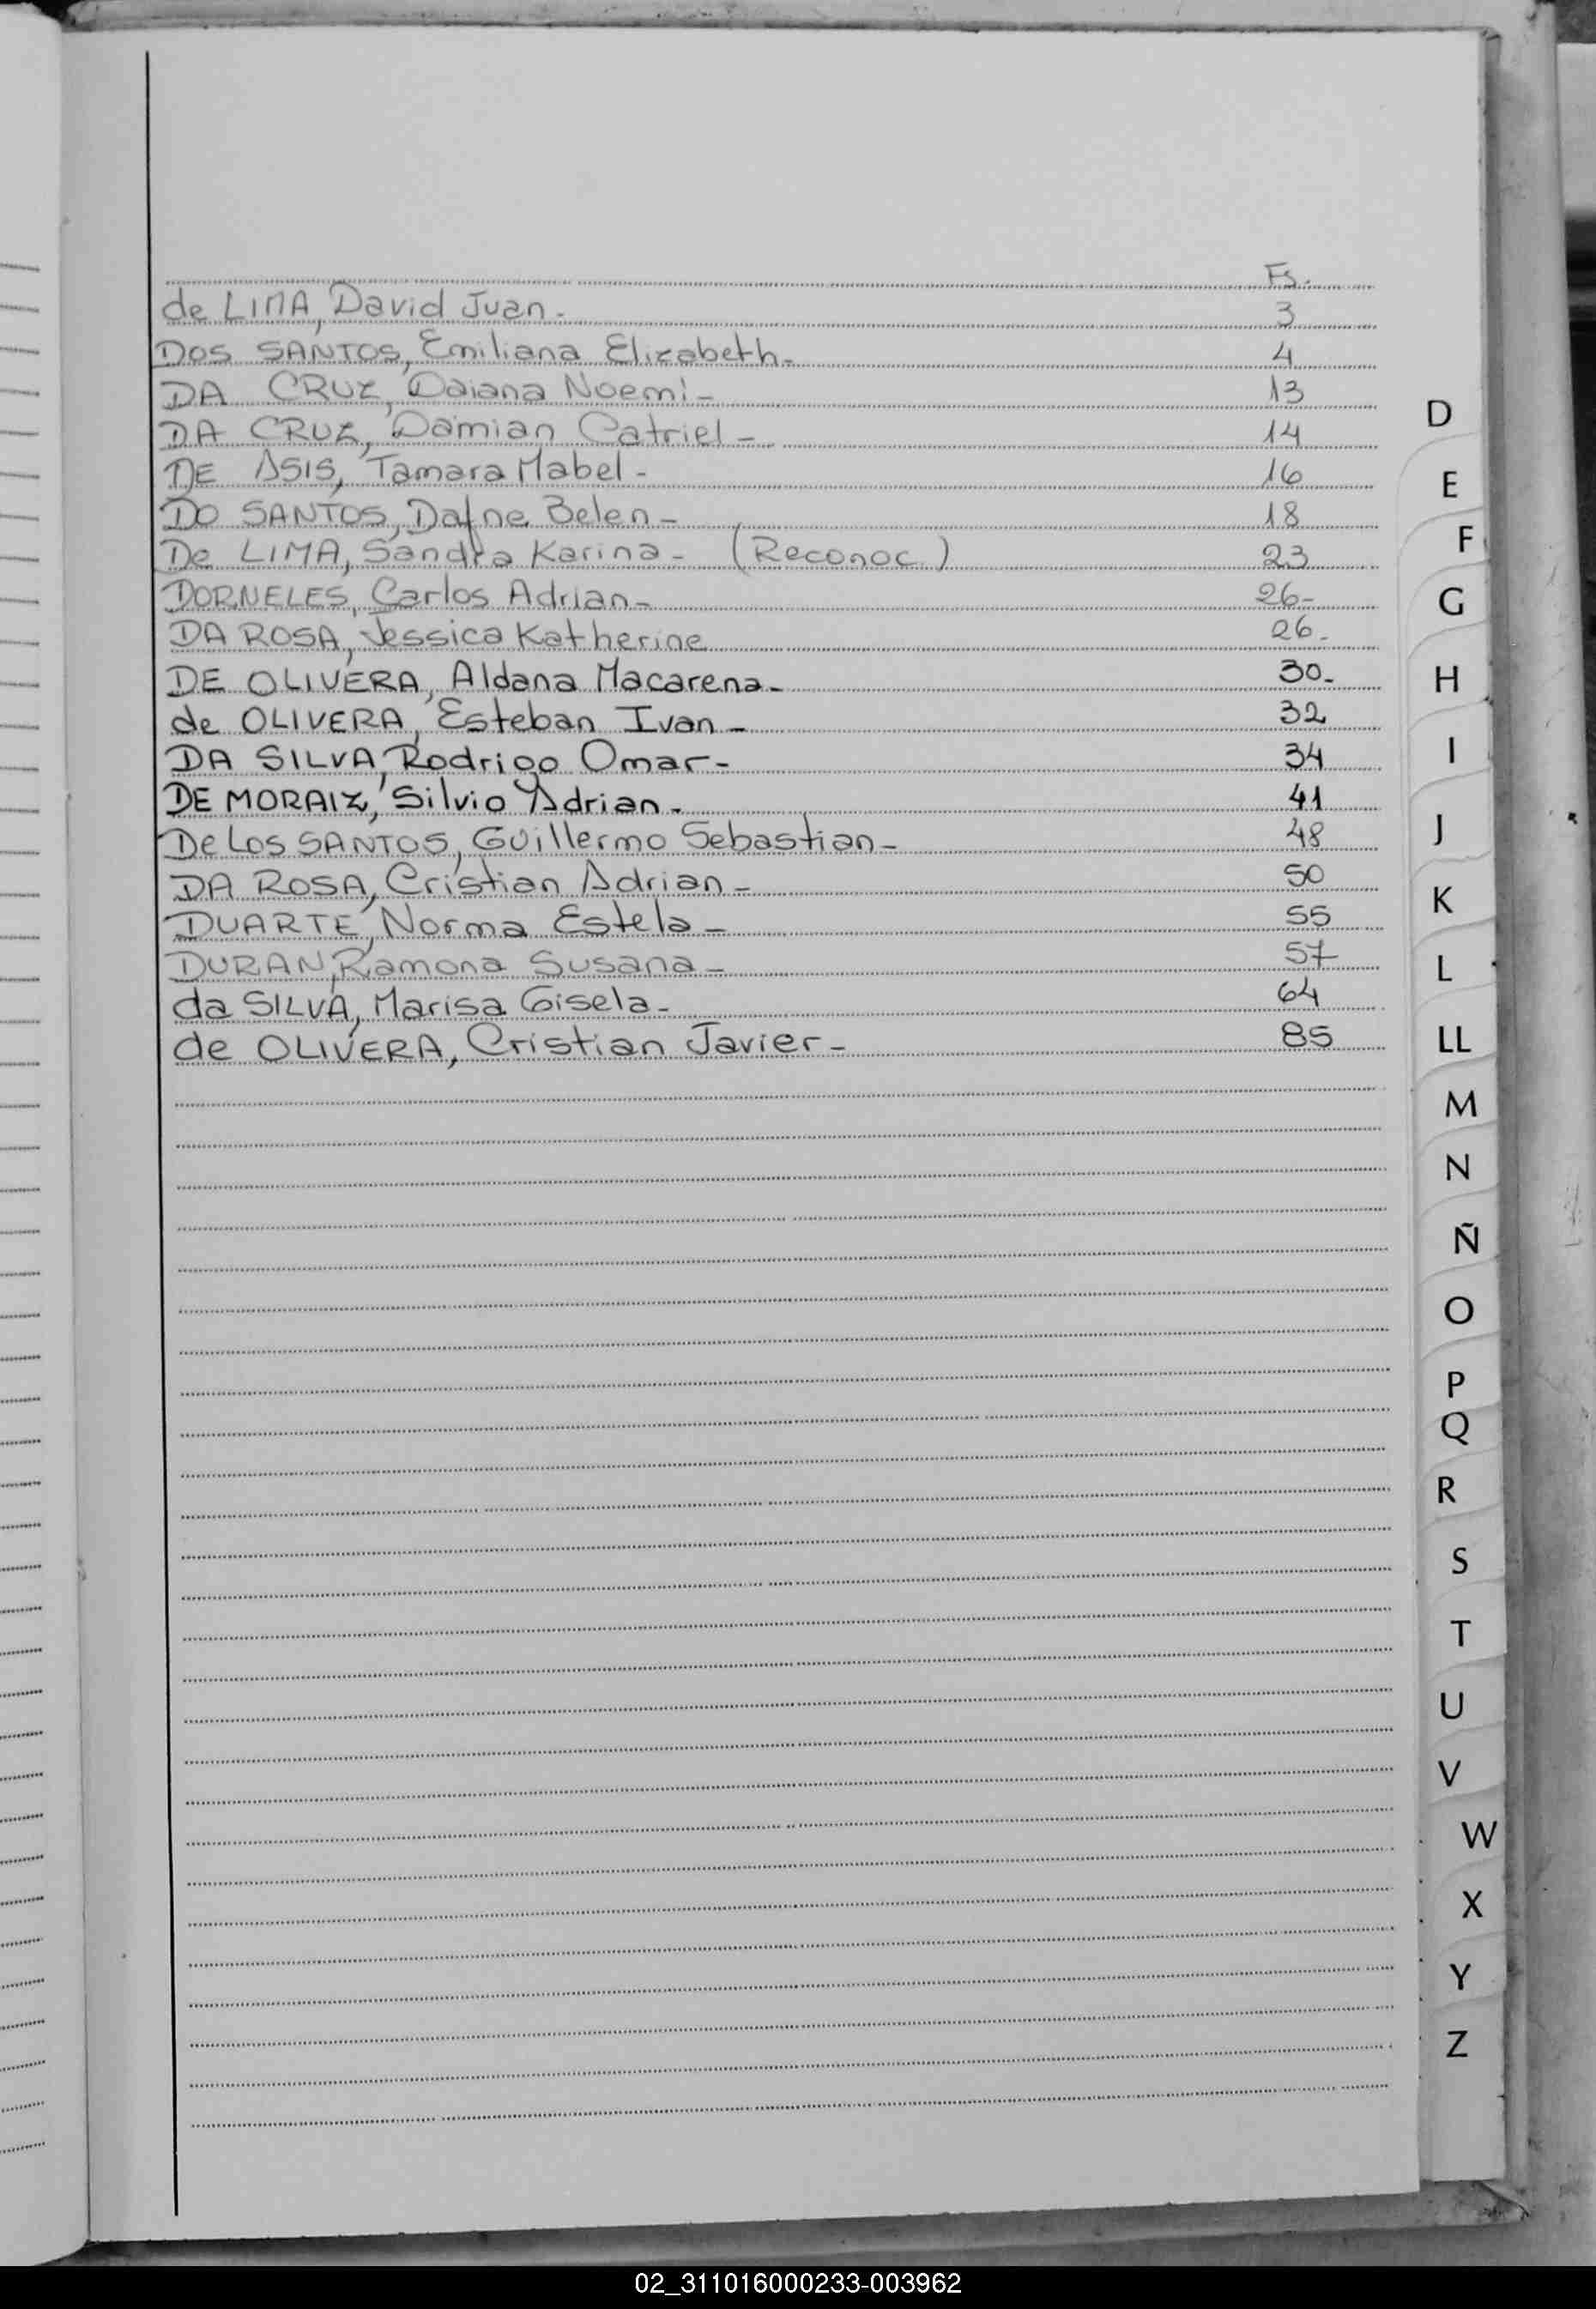 Fs.
de LIMA, David Juan. 3
DOS SANTOS, Emiliana Elizabeth- 4
DA CRUZ, Daiana Noemi- 13
DA CRUZ, Damian Catriel- 14
DE ASIS, Tamara Mabel- 16
DO SANTOS, Dafne Belen- 18
De LIMA, Sandra Karina- (Reconoc.) 23
DORNELES, Carlos Adrian- 26-
DA ROSA, Jessica Katherine 26-
DE OLIVERA, Aldana Macarena- 30-
de OLIVERA, Esteban Ivan- 32
DA SILVA, Rodrigo Omar- 34
DE MORAIZ, Silvio Adrian- 41
De Los SANTOS, Guillermo Sebastian- 48
DA ROSA, Cristian Adrian- 50
DUARTE, Norma Estela- 55
DURAN, Ramona Susana- 57
da SILVA, Marisa Gisela- 64
de OLIVERA, Cristian Javier- 85
D
E
F
G
H
I
J
K
L
LL
M
N
Ñ
O
P
Q
R
S
T
U
V
W
X
Y
Z
02_311016000233-003962